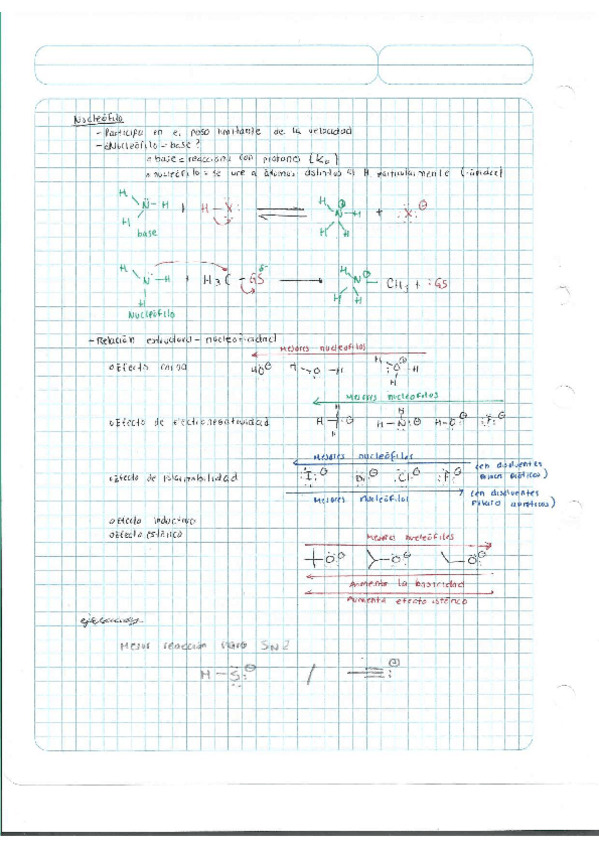 Nucleófilo
- Participa en el paso limitante de la velocidad
- ¿Nucleófilo = base?
base = reacciona con protones
nucleófilo = se une a átomos distintos al H
H
N - H + H - X ⇌ H N - H + X ⊖
H
base
H
N - H + H3C - GS → H N - CH3 + :GS
H
Nucleófilo
- Relación estructura - nucleofilicidad
Mejores nucleófilos
Efecto carga HO⊖ H O - H H - O - H
H
Mejores nucleófilos
Efecto de electronegatividad H - N ⊖ H - O ⊖ F ⊖
Mejores nucleófilos (en disolventes
Efecto de polarizabilidad I ⊖ Br ⊖ Cl ⊖ F ⊖
Mejores nucleófilos (en disolventes
efecto inductivo
efecto estérico
Mejores nucleófilos
O ⊖ O ⊖ O ⊖
Aumenta la basicidad
Aumenta efecto estérico
Mejor reacción para SN2
H - S ⊖ / ≡ ⊖